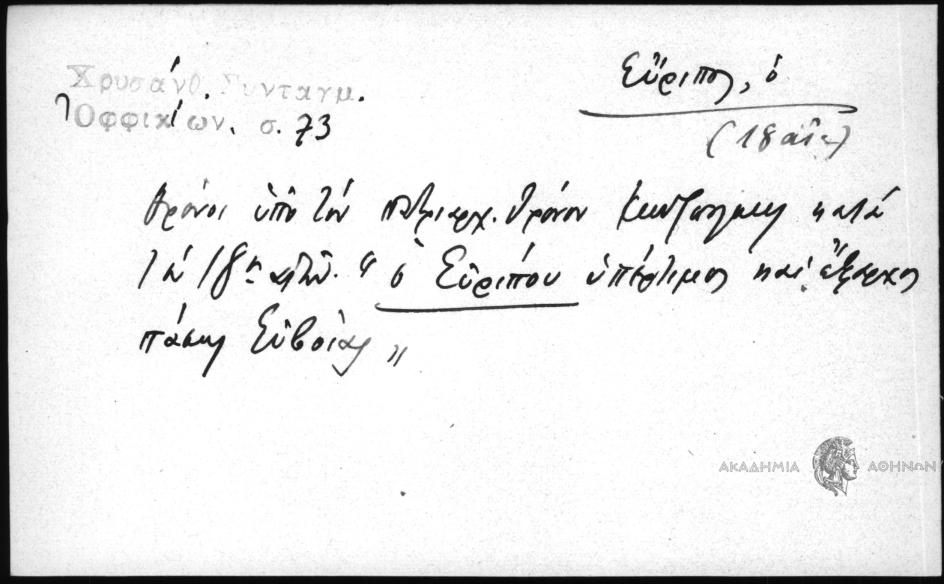 Χρυσάνθ. Συνταγμ.
Ὀφφικίων. σ. 73
Εὔριπος, ὁ
(18 αἰ.)
θρόνοι ὑπὸ τὸν πατριαρχ. θρόνον κατὰ
18ην “ὁ Εὐρίπου ὑπέρτιμος καὶ ἔξαρχος
πάσης Εὐβοίας„
ΑΚΑΔΗΜΙΑ ΑΘΗΝΩΝ